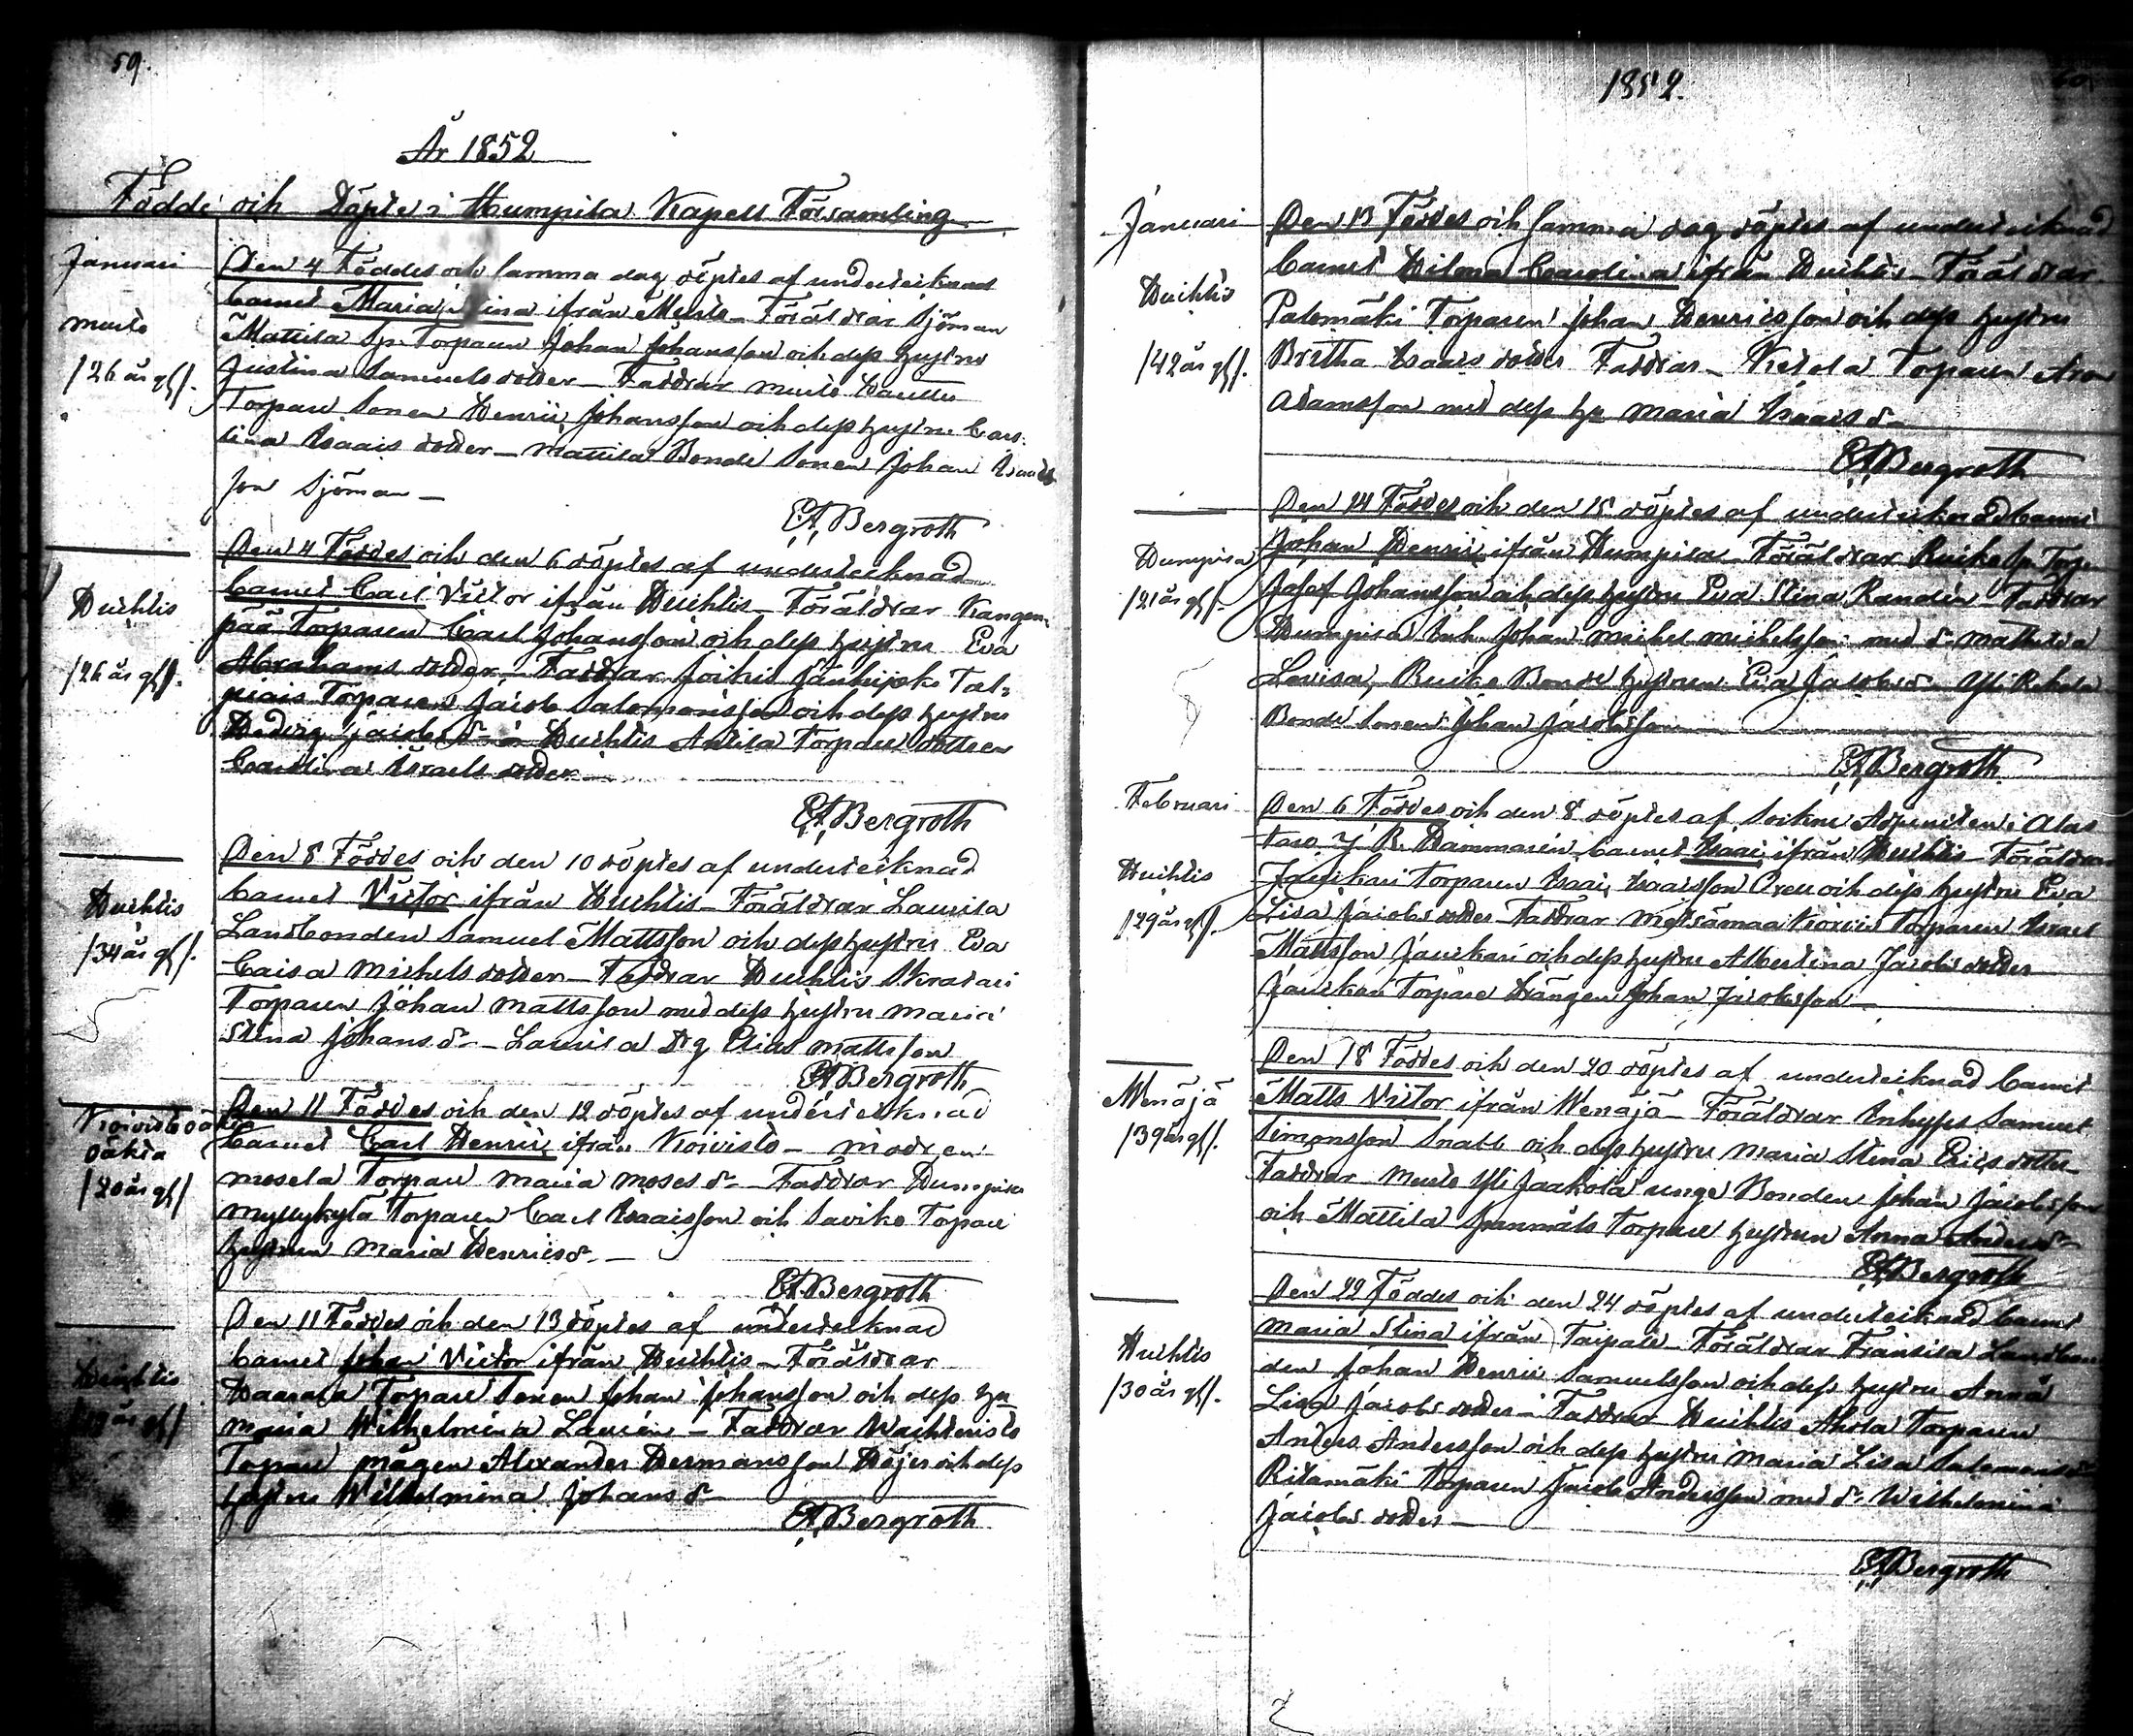 59.
År 1852
Födde och Döpte i Humpila Kapell Församling
Januari
Den 4 Föddes och samma dag döptes af undertecknad
Barnet Maria Stina ifrån Murto – Föräldrar Sjöman
Murto
Mattila Sp. Torparen Johan Johansson och dess hustru
/26 år gl/.
Justina Samuelsdotter – Faddrar Murto
Torpare Sonen Henric Johansson och dess hustru Caro-
lina Isaacs dotter – Mattila Bonde Sonen Johan Isaacs
son Sjöman –
EA Bergroth
Den 4 Föddes och den 6 döptes af undertecknad
Huhtis
Barnet Carl Victor ifrån Huhtis – Föräldrar Kangen-
pää Torparen Carl Johansson och dess hustru Eva
/26 år gl/.
Abrahams dotter – Faddrar Jokis Jänhijoki Tal-
piais Torparen Jacob Salomonsson och dess hustru
Hedvig Jacobs dr Huhtis Anttila Torpare dottren
Carolina Israels dotter –
EA Bergroth
Den 8 Föddes och den 10 döptes af undertecknad
Huhtis
Barnet Victor ifrån Huhtis – Föräldrar Laurila
/34 år gl/.
Landbonden Samuel Mattsson och dess hustru Eva
Caisa Michels dotter – Faddrar Huhtis
Torparen Johan Mattsson med dess hustru Maria
Stina Johans dr – Laurila Drg Elias Mattsson
EA Bergroth
Koivisto
oäkta
Den 11 Föddes och den 12 döptes af undertecknad
/20 år gl/
Barnet Carl Henric ifrån Koivisto – modren
Mosela Torpare Maria Moses dr – Faddrar Humpila
Myllykylä Torparen Carl Isaacsson och Saviko Torpare
hustrun Maria Henrics dr –
EA Bergroth
Den 11 Föddes och den 13 döptes af undertecknad
Huhtis
Barnet Johan Victor ifrån Huhtis – Föräldrar
Torpare Sonen Johan Johansson och dess hu
Maria Wilhelmina Laurén – Faddrar
Torpare mågen Alexander Hermansson Höjer och dess
hustru Wilhelmina Johans dr
EA Bergroth
1852.
Januari
Den 13 Föddes och samma dag döptes af undertecknad
Huhtis
Barnet Carolina ifrån Huhtis – Föräldrar
Palomäki Torparen Johan Henricsson och dess hustru
/42 år gl/.
Britha Isaacs dotter Faddrar – Ketola Torparen Aron
Adamsson med dess hu Maria Isaacs dr
EA Bergroth
Den 14 Föddes och den 15 döptes af undertecknad Barnet
Humpila
Johan Henric ifrån Humpila – Föräldrar Ruike Sp. Torp.
/21 år gl/.
Josef Johansson och dess hustru Eva Stina Randén – Faddrar
Humpila Inh. Johan Michel Michelsson med dr Mathilda
Lovisa, Ruike Bonde hustrun Eva Jacobs dr Yli Rekola
Bonde Sonen Johan Jacobsson
EA Bergroth
Februari
Den 6 Föddes och den 8 döptes af Sockne Adjuncten i Alas
taro J. R. Hammarén Barnet Isaac ifrån Huhtis – Föräldrar
Huhtis
Torparen Isaac Isaacsson och dess hustru Eva
/29 år gl/.
Lisa Jacobs dotter Faddrar Metsämaa Torparen Israel
Mattsson och dess hustru Albertina Jacobs dotter
Torpare Drängen Johan Jacobsson –
Den 18 Föddes och den 20 döptes af undertecknad Barnet
Wenäjä
Matts Victor ifrån Wenäjä – Föräldrar Inhyses Samuel
/39 år gl/.
Simonsson Snabb och dess hustru Maria Stina Erics dotter
Faddrar Murto Yli Jaakola unge Bonden Johan Jacobsson
och Mattila Torpare hustrun Anna Anders dr
EA Bergroth
Den 22 Föddes och den 24 döptes af undertecknad Barnet
Maria Stina ifrån Taipale – Föräldrar Fransila Landbon
Huhtis
den Johan Henric Samuelsson och dess hustru Anna
/30 år gl/.
Lisa Jacobs dotter – Faddrar Huhtis Ahola Torparen
Anders Andersson och dess hustru Maria Lisa Salomons dr
Ritamäki Torparen Jacob Andersson med dr Wilhelmina
Jacobs dotter –
EA Bergroth